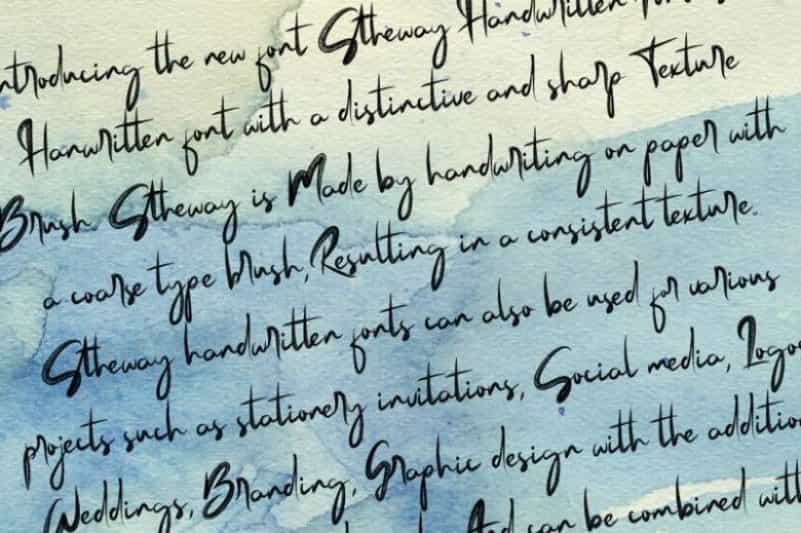 ntroducing the new font Stheway Handwritten
Hanwritten font with a distinctive and sharp Texture
Brush Stheway is Made by handwriting on paper with
a coarse type brush, Resulting in a consistent texture.
Stheway handwritten fonts can also be used for various
projects such as stationery invitations, Social media, Logos
Weddings, Branding, Graphic design with the addition
And can be combined with